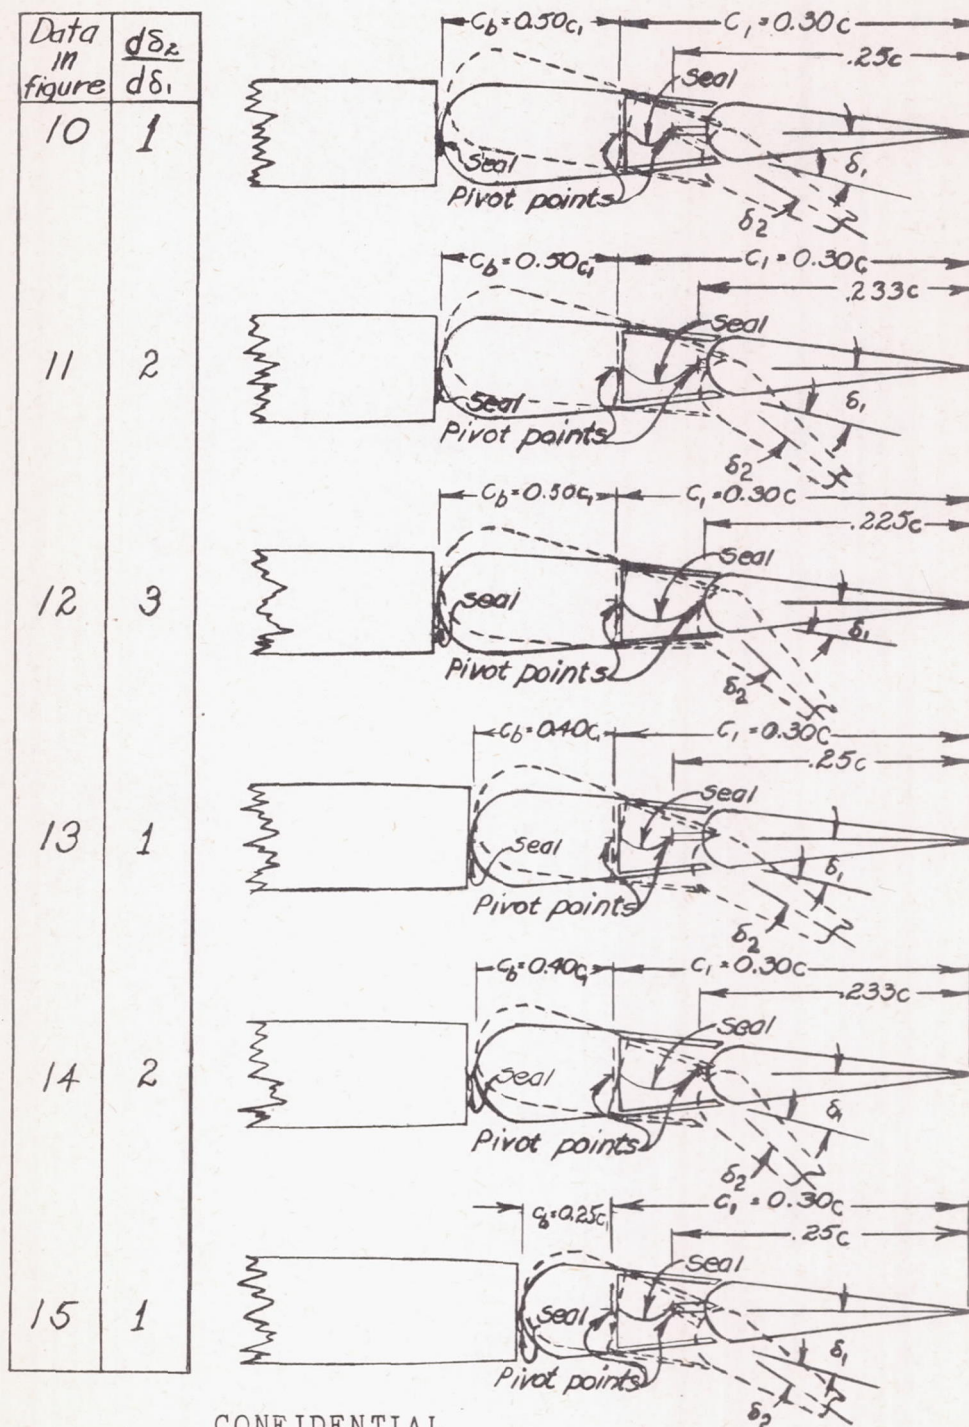 Data in figure dδ₂/dδ₁
C_b = 0.50c₁ C₁ = 0.30c
.25c
seal
10 1
Seal
Pivot points
δ₁
δ₂
C_b = 0.50c₁ C₁ = 0.30c
.233c
seal
11 2
seal
Pivot points
δ₁
δ₂
C_b = 0.50c₁ C₁ = 0.30c
.225c
seal
12 3
seal
δ₁
Pivot points
δ₂
C_b = 0.40c₁ C₁ = 0.30c
.25c
seal
13 1
seal
δ₁
Pivot points
δ₂
C_b = 0.40c₁ C₁ = 0.30c
.233c
seal
14 2
seal
δ₁
Pivot points
δ₂
C_b = 0.25c₁ C₁ = 0.30c
.25c
seal
15 1
seal
δ₁
Pivot points
δ₂
CONFIDENTIAL